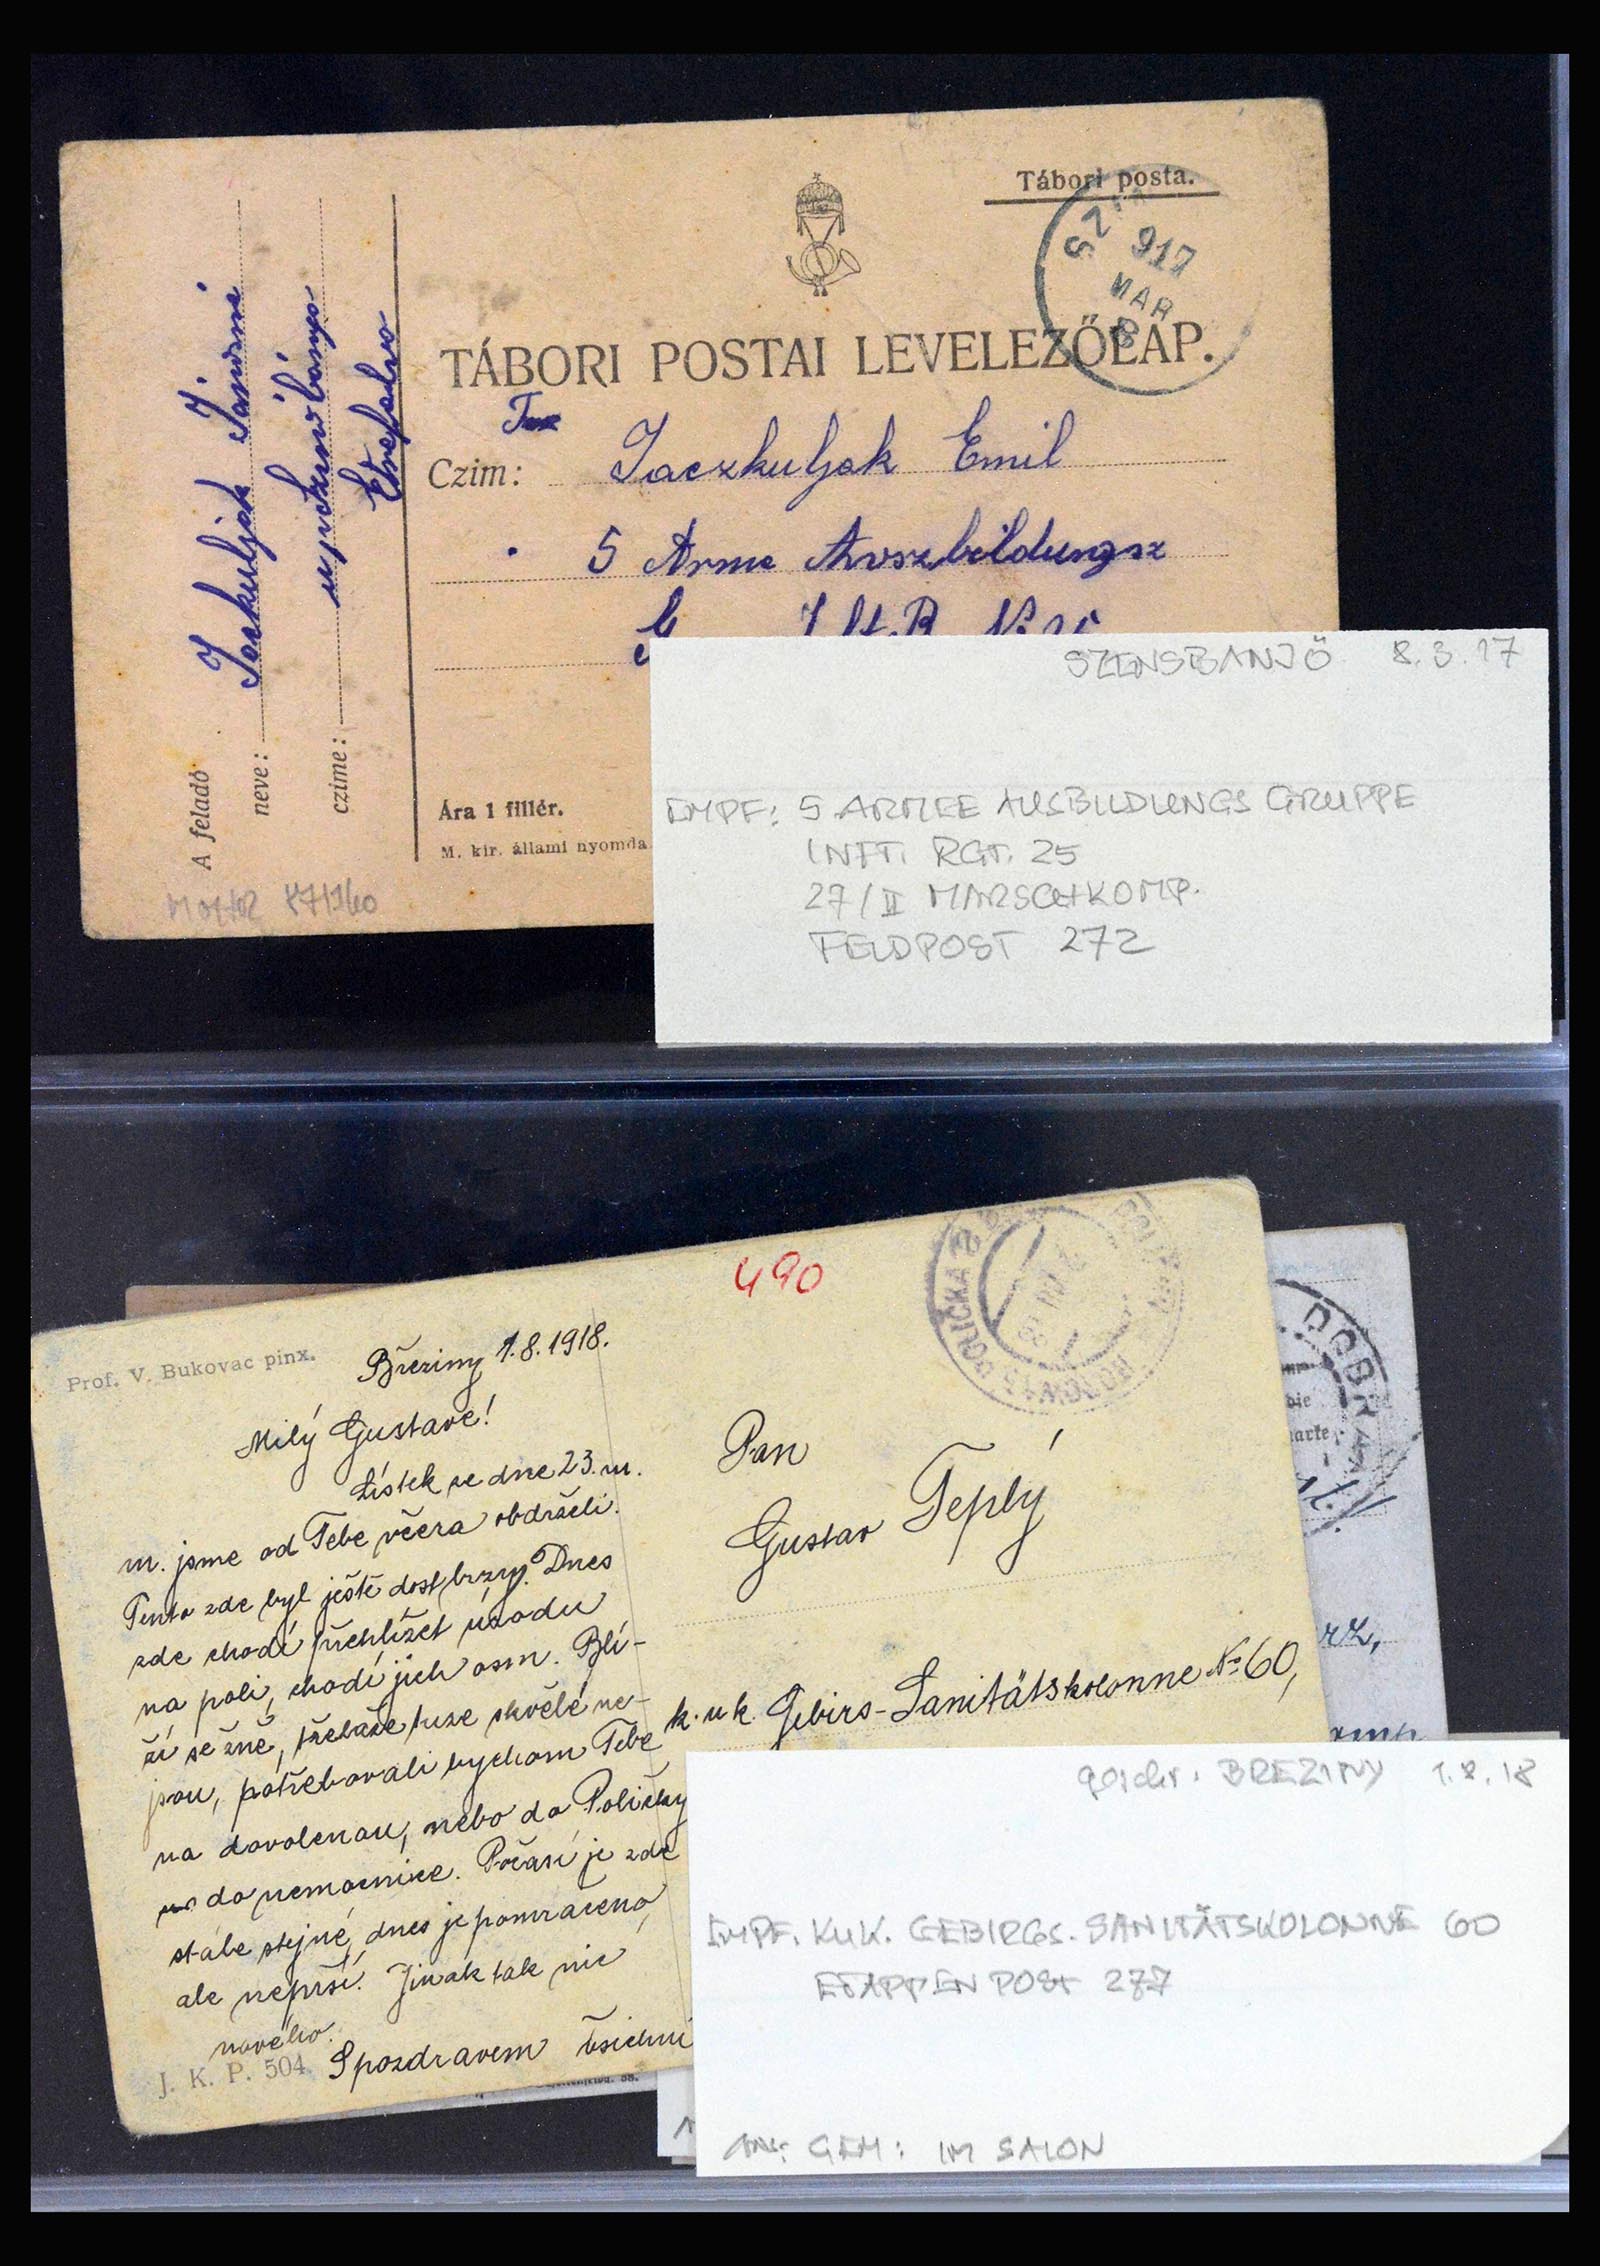 Tábori posta.
917
MAR
8
TÁBORI POSTAI LEVELEZŐLAP.
Czim: Jaczkuljak Emil
5 Arme Auszbildungsz
A feladó
neve: Jaczkuljak Jánosné
czime:
Ára 1 fillér.
M. kir. állami nyomda
SZENSBANJÖ 8.3.17
EMPF: 5. ARMEE AUSBILDUNGS GRUPPE
INFT. RGT. 25
27/II MARSCHKOMP.
FELDPOST 272
490
Prof. V. Bukovac pinx.
POLIČKA
Březiny 1.8.1918.
Milý Gustave!
Lístek ze dne 23. m.
m. jsme od Tebe včera obdrželi.
Tento zde byl ještě dost brzy. Dnes
zde chodí přehlížet úrodu
na poli, chodí jich osm. Blí-
ží se žně, třebaže tuze skvělé ne-
jsou, potřebovali bychom Tebe
na dovolenou, nebo do Poličky
do nemocnice. Počasí je zde
stále stejné, dnes je pomračeno,
ale neprší. Jinak tak nic
nového.
S pozdravem všichni
J. K. P. 504.
Pan
Gustav Teplý
k. u k. Gebirs-Sanitätskolonne No 60,
DOBRA
die
marke
rz,
gerschr. BREZINY 1.8.18
EMPF. KUK. GEBIRGS. SANITÄTSKOLONNE 60
ETAPPENPOST 287
ANS. GEM: IM SALON